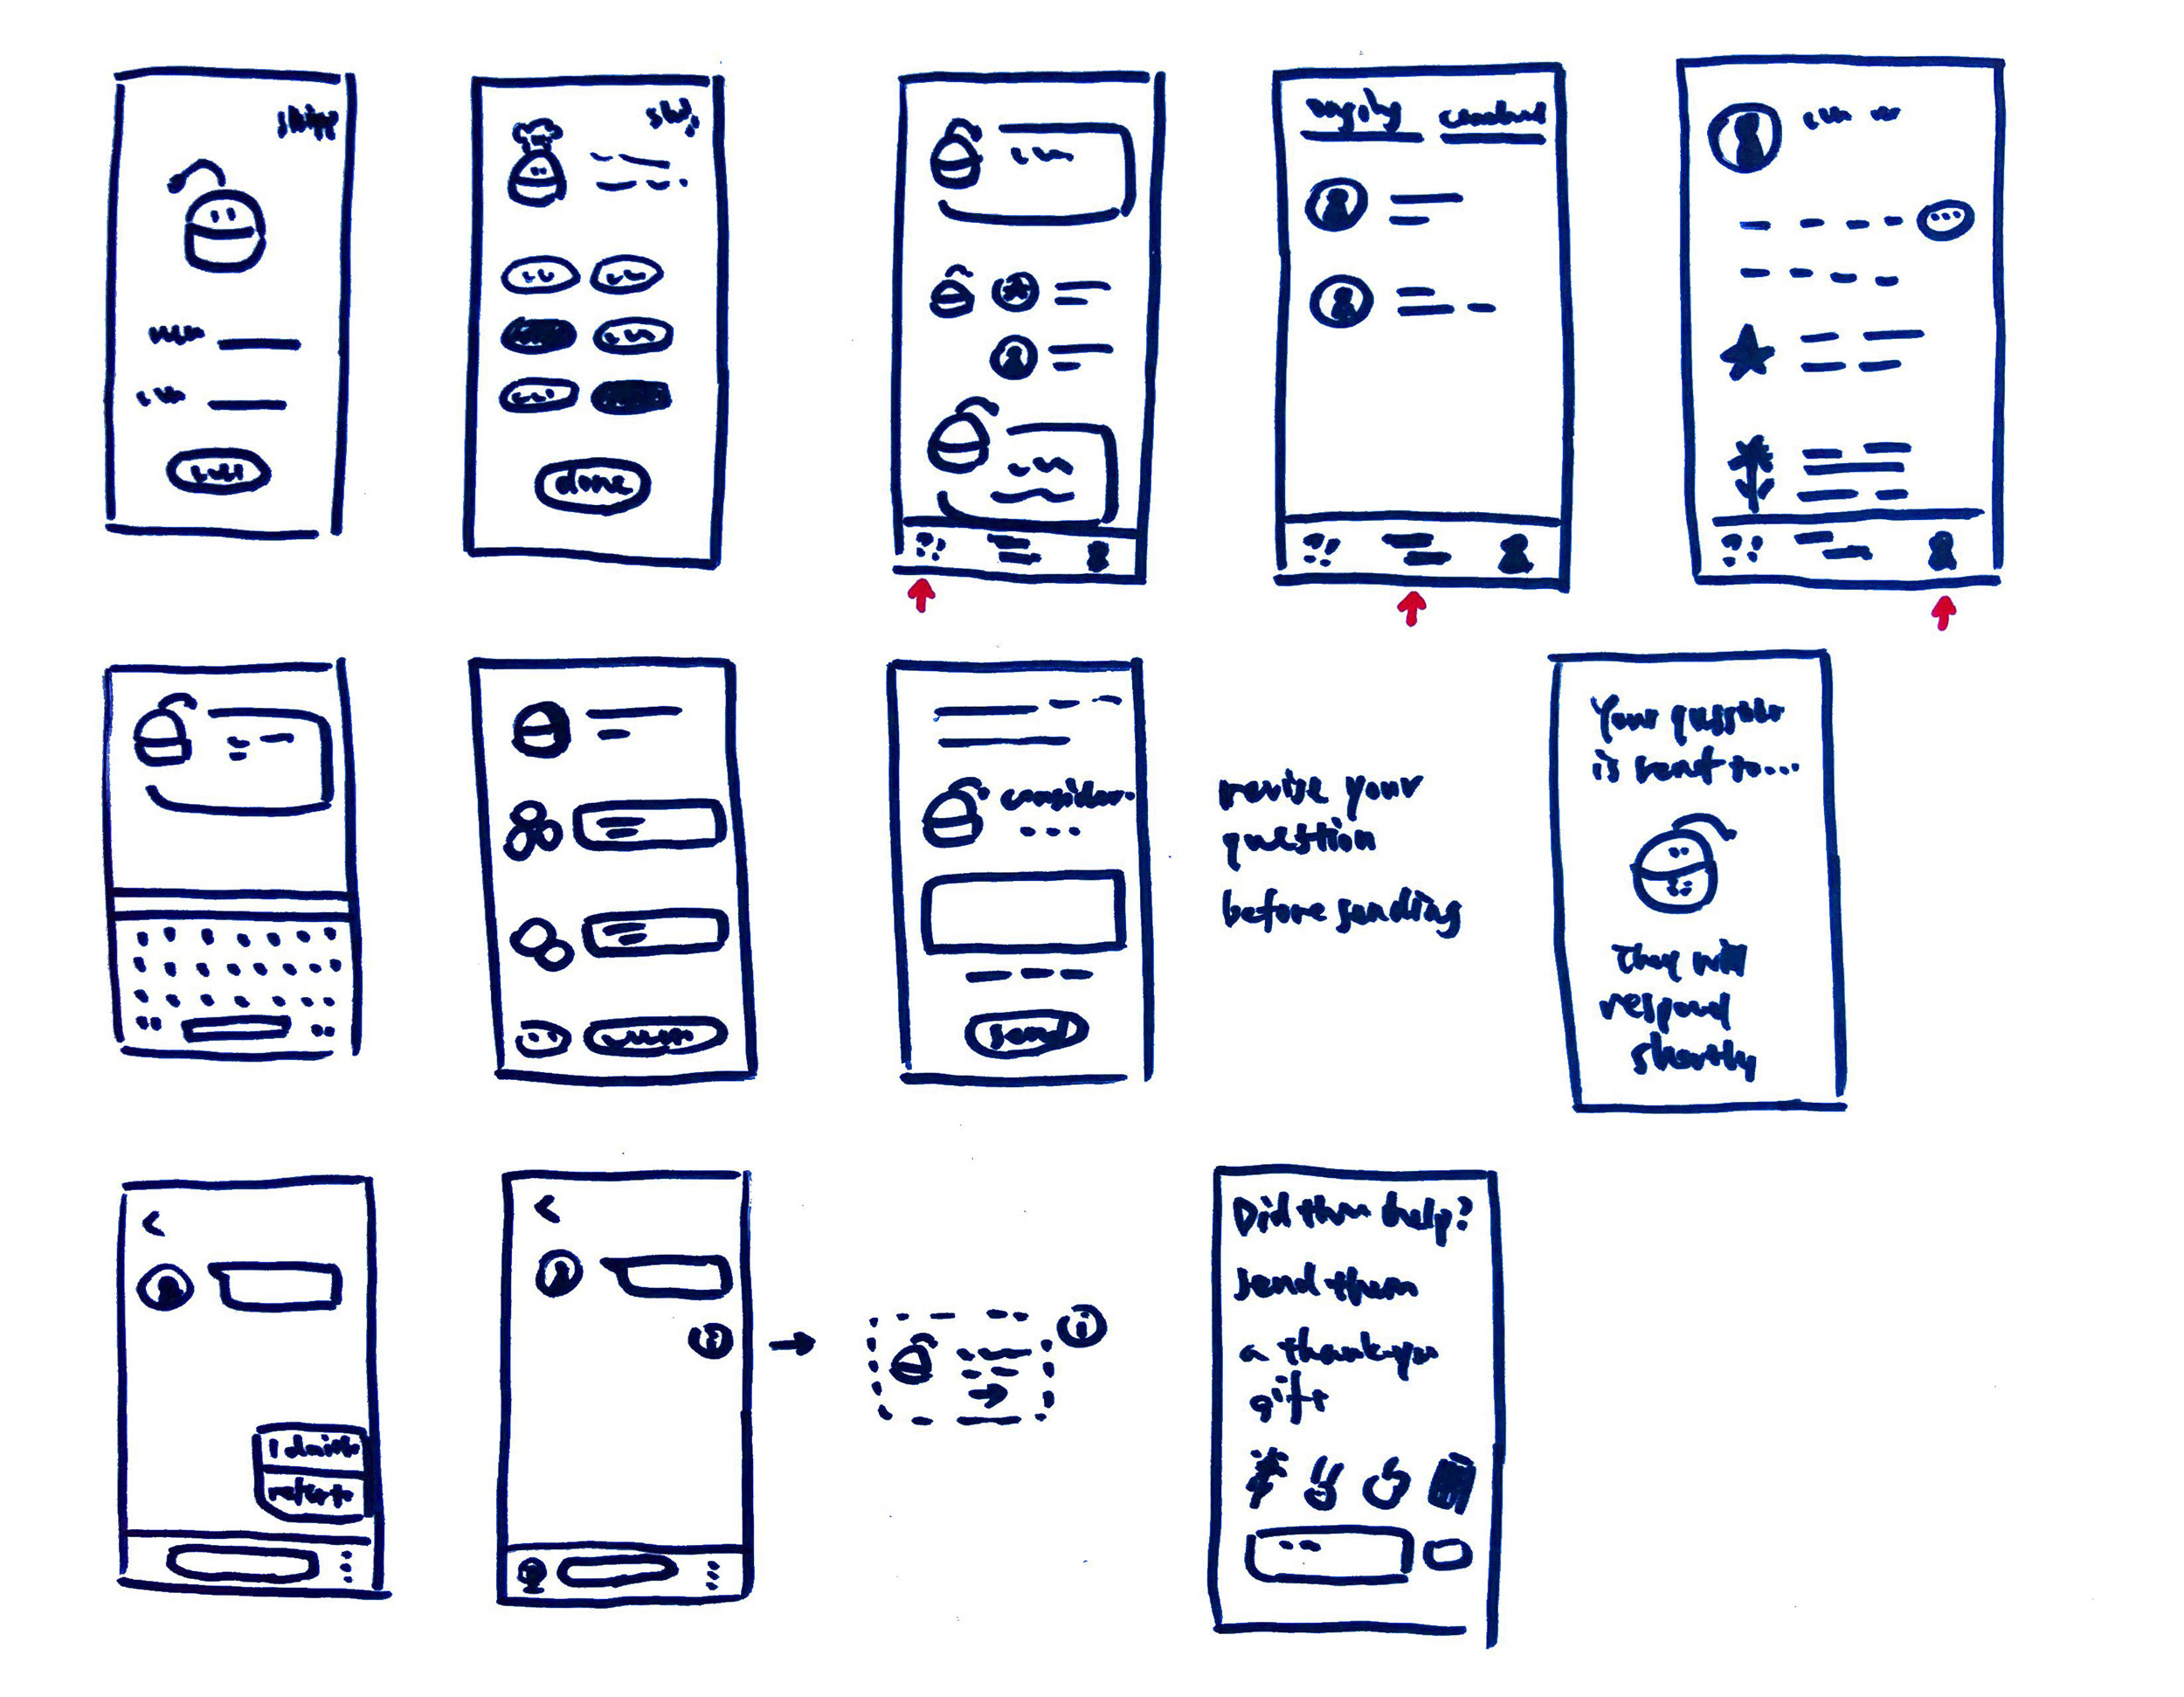 skip
done
consider
...
send
revise your
question
before sending
Your question
is sent to...
They will
respond
shortly
<
<
Did them help?
send them
a thank you
gift